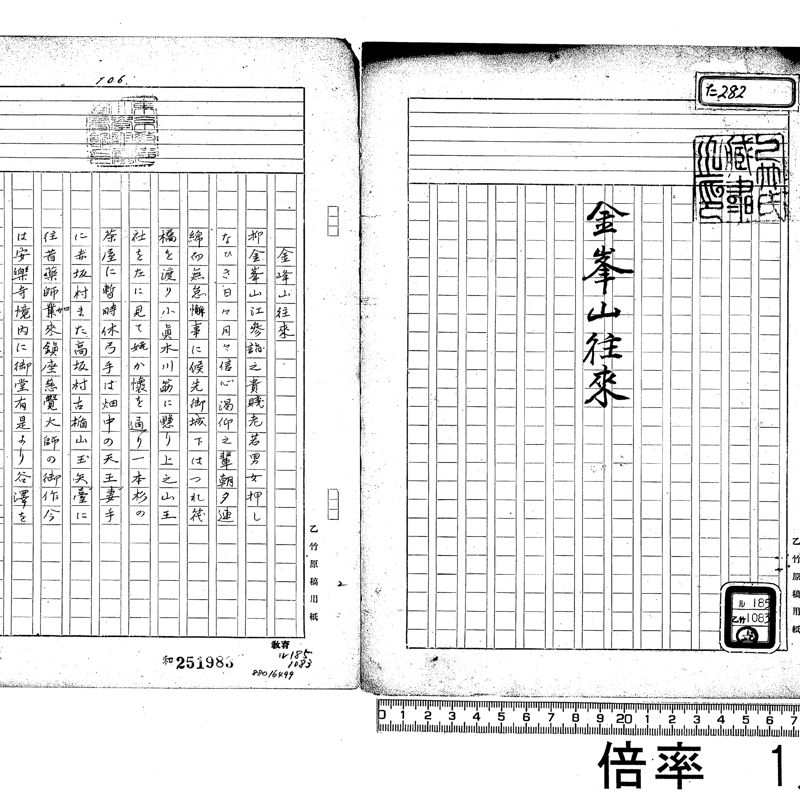 た282
乙竹氏
蔵書
之印
金峯山往來
乙竹原稿用紙
ル 185
乙竹 1083
706
金峰山往來
抑金峯山江參詣之貴賤老若男女押し
なひき日々月々信心渇仰之輩朝夕連
綿而無怠懈事に候先御城下はつれ筏
橋を渡り小眞木川筋に懸り上之山王
社を左に見て妩か懐を通り一本杉の
茶屋に暫時休弓手は畑中の天王妻手
に赤坂村また高坂村古楯山玉矢臺に
往昔藥師如來鎮座慈覺大師の御作今
は安樂寺境内に御堂有是より谷澤を
乙竹原稿用紙
2
教育
ル185
1083
和251983
88016499
0 1 2 3 4 5 6 7 8 9 20 1 2 3 4 5 6 7
倍率 1